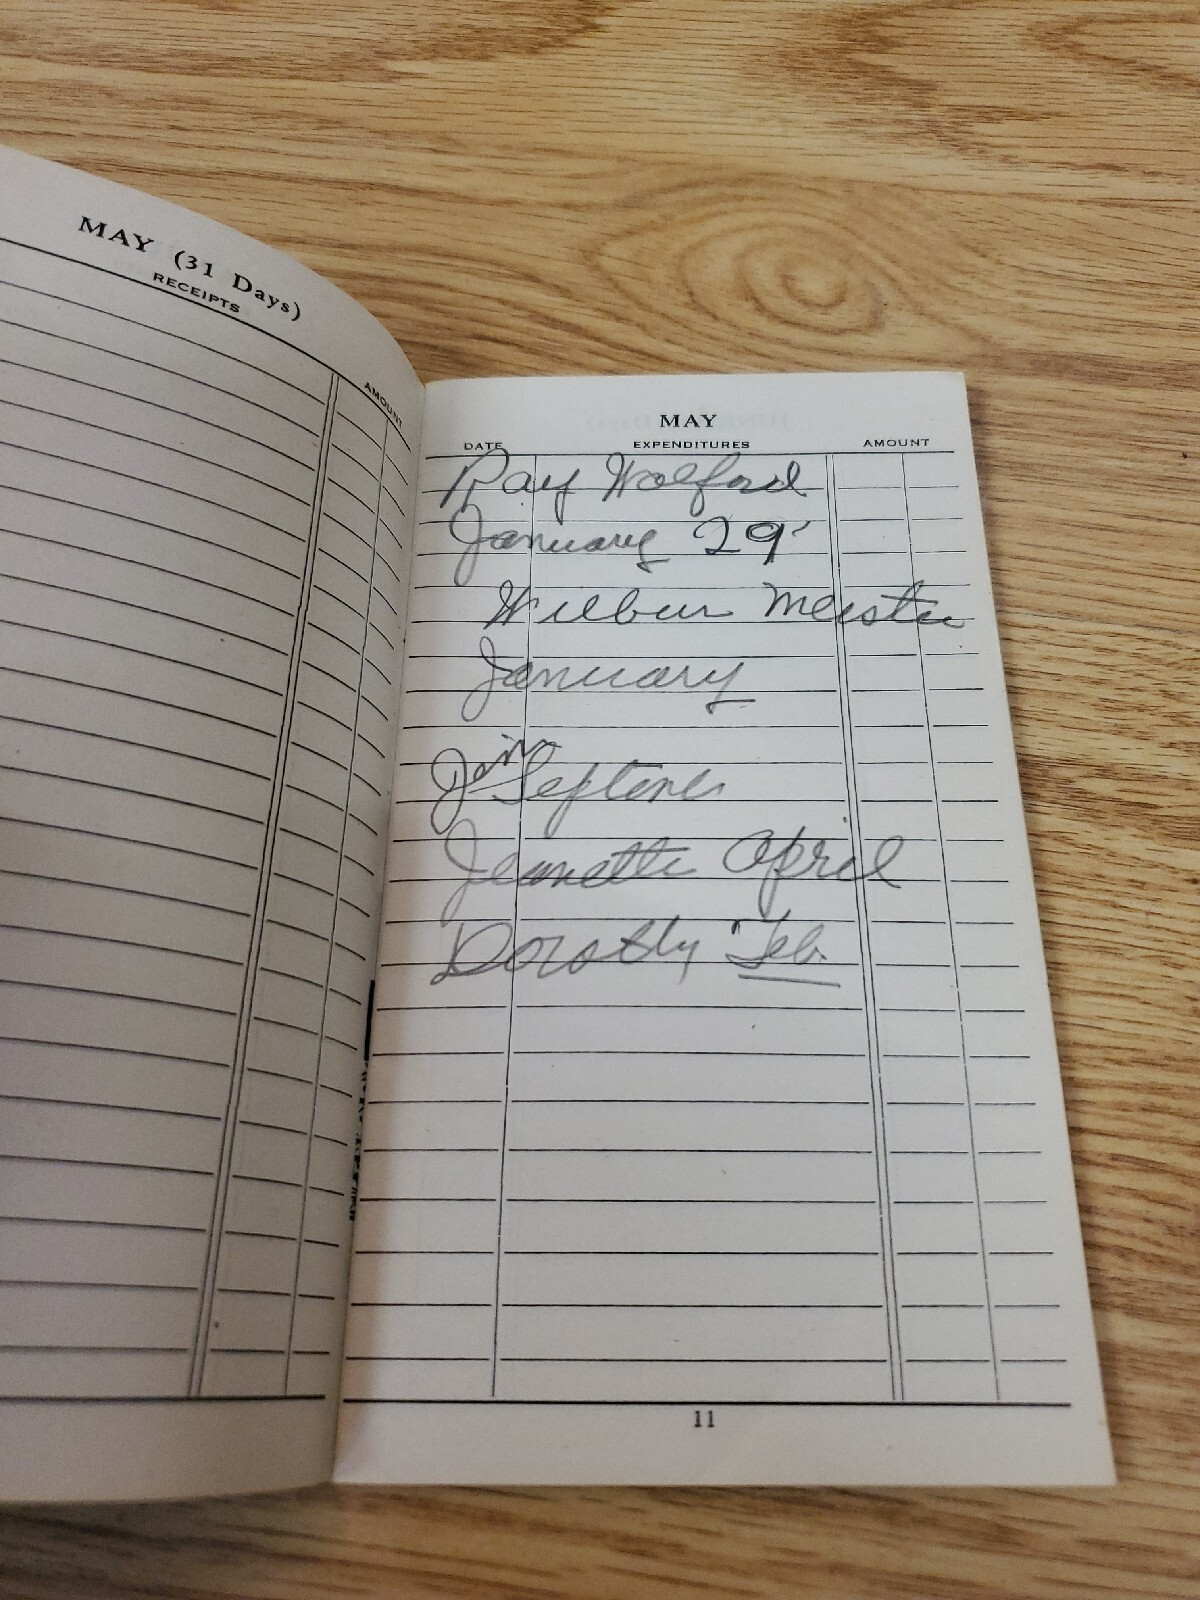 MAY (31 Days)
RECEIPTS
AMOUNT
MAY
DATE EXPENDITURES AMOUNT
Ray Wolford
January 29
Wilbur Meister
January
Jim
Jeanette April
Dorothy Feb.
11